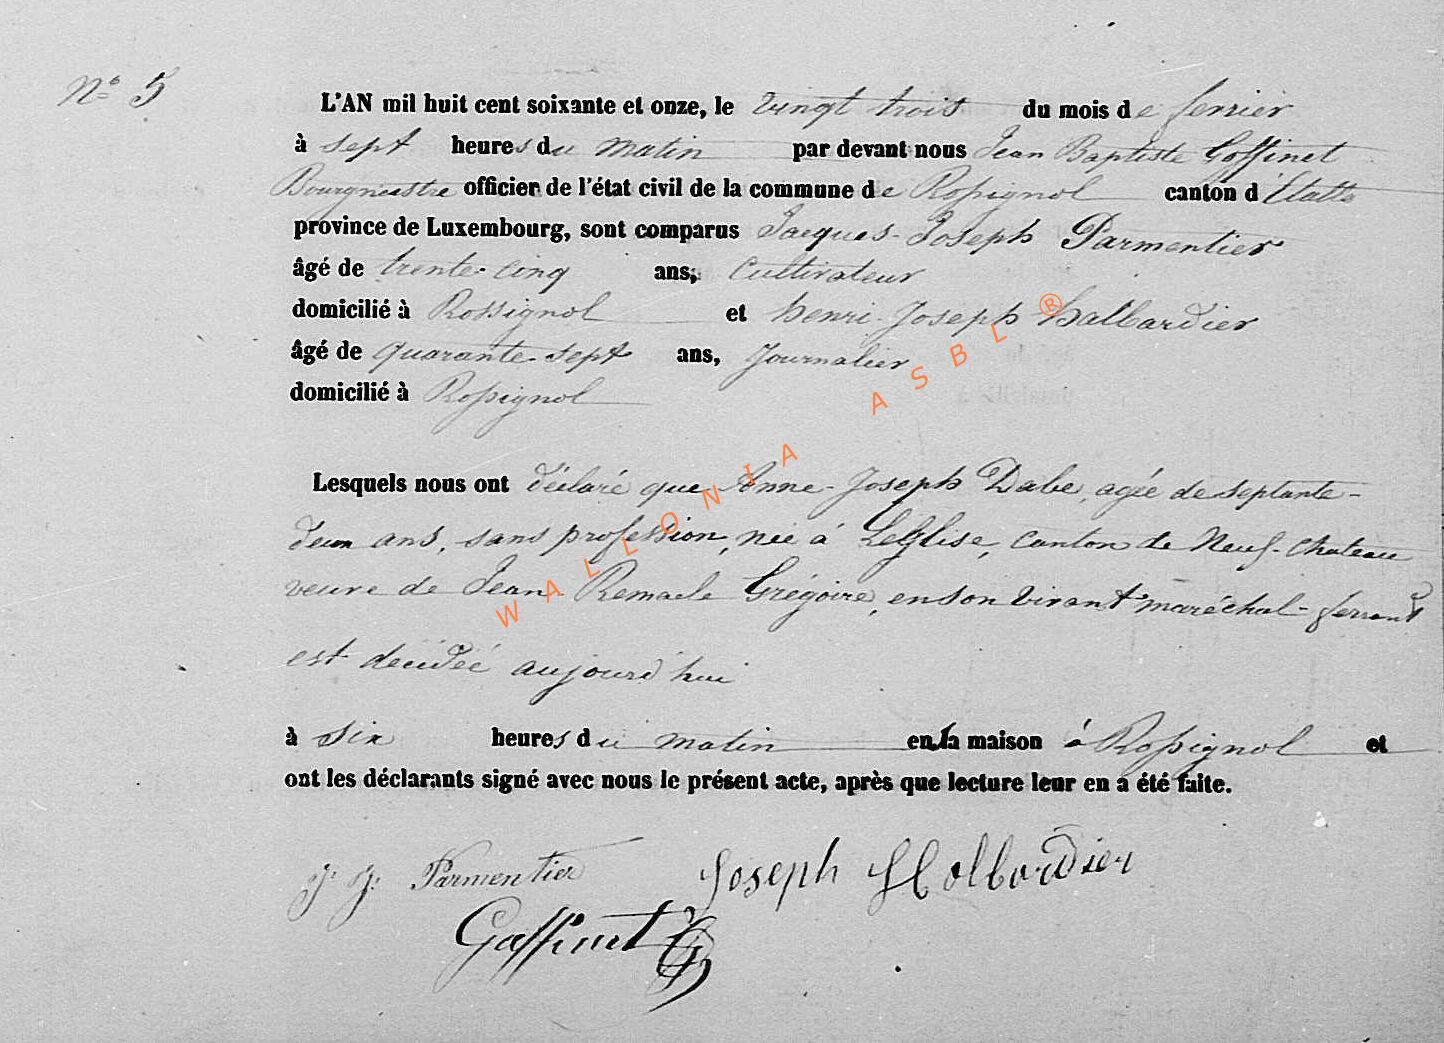 N° 5
L'AN mil huit cent soixante et onze, le vingt trois du mois de ferrier
à sept heures du matin par devant nous Jean Baptiste Goffinet
Bourgmestre officier de l'état civil de la commune de Rossignol canton d'Etalle
province de Luxembourg, sont comparus Jacques-Joseph Parmentier
âgé de trente-cinq ans, cultivateur
domicilié à Rossignol et henri-Joseph halbardier
âgé de quarante-sept ans, journalier
domicilié à Rossignol
Lesquels nous ont déclaré que Anne-Joseph Dabe, agée de septante-
deux ans, sans profession, née à LeGlise, canton de Neuf-chateau
veuve de Jean Remacle Grégoire, en son vivant maréchal-ferrant
est décidée aujourd'hui
à six heures du matin en sa maison à Rossignol et
ont les déclarants signé avec nous le présent acte, après que lecture leur en a été faite.
J. J. Parmentier Joseph Holbardier
Goffinet
WALLONIA ASBL ®